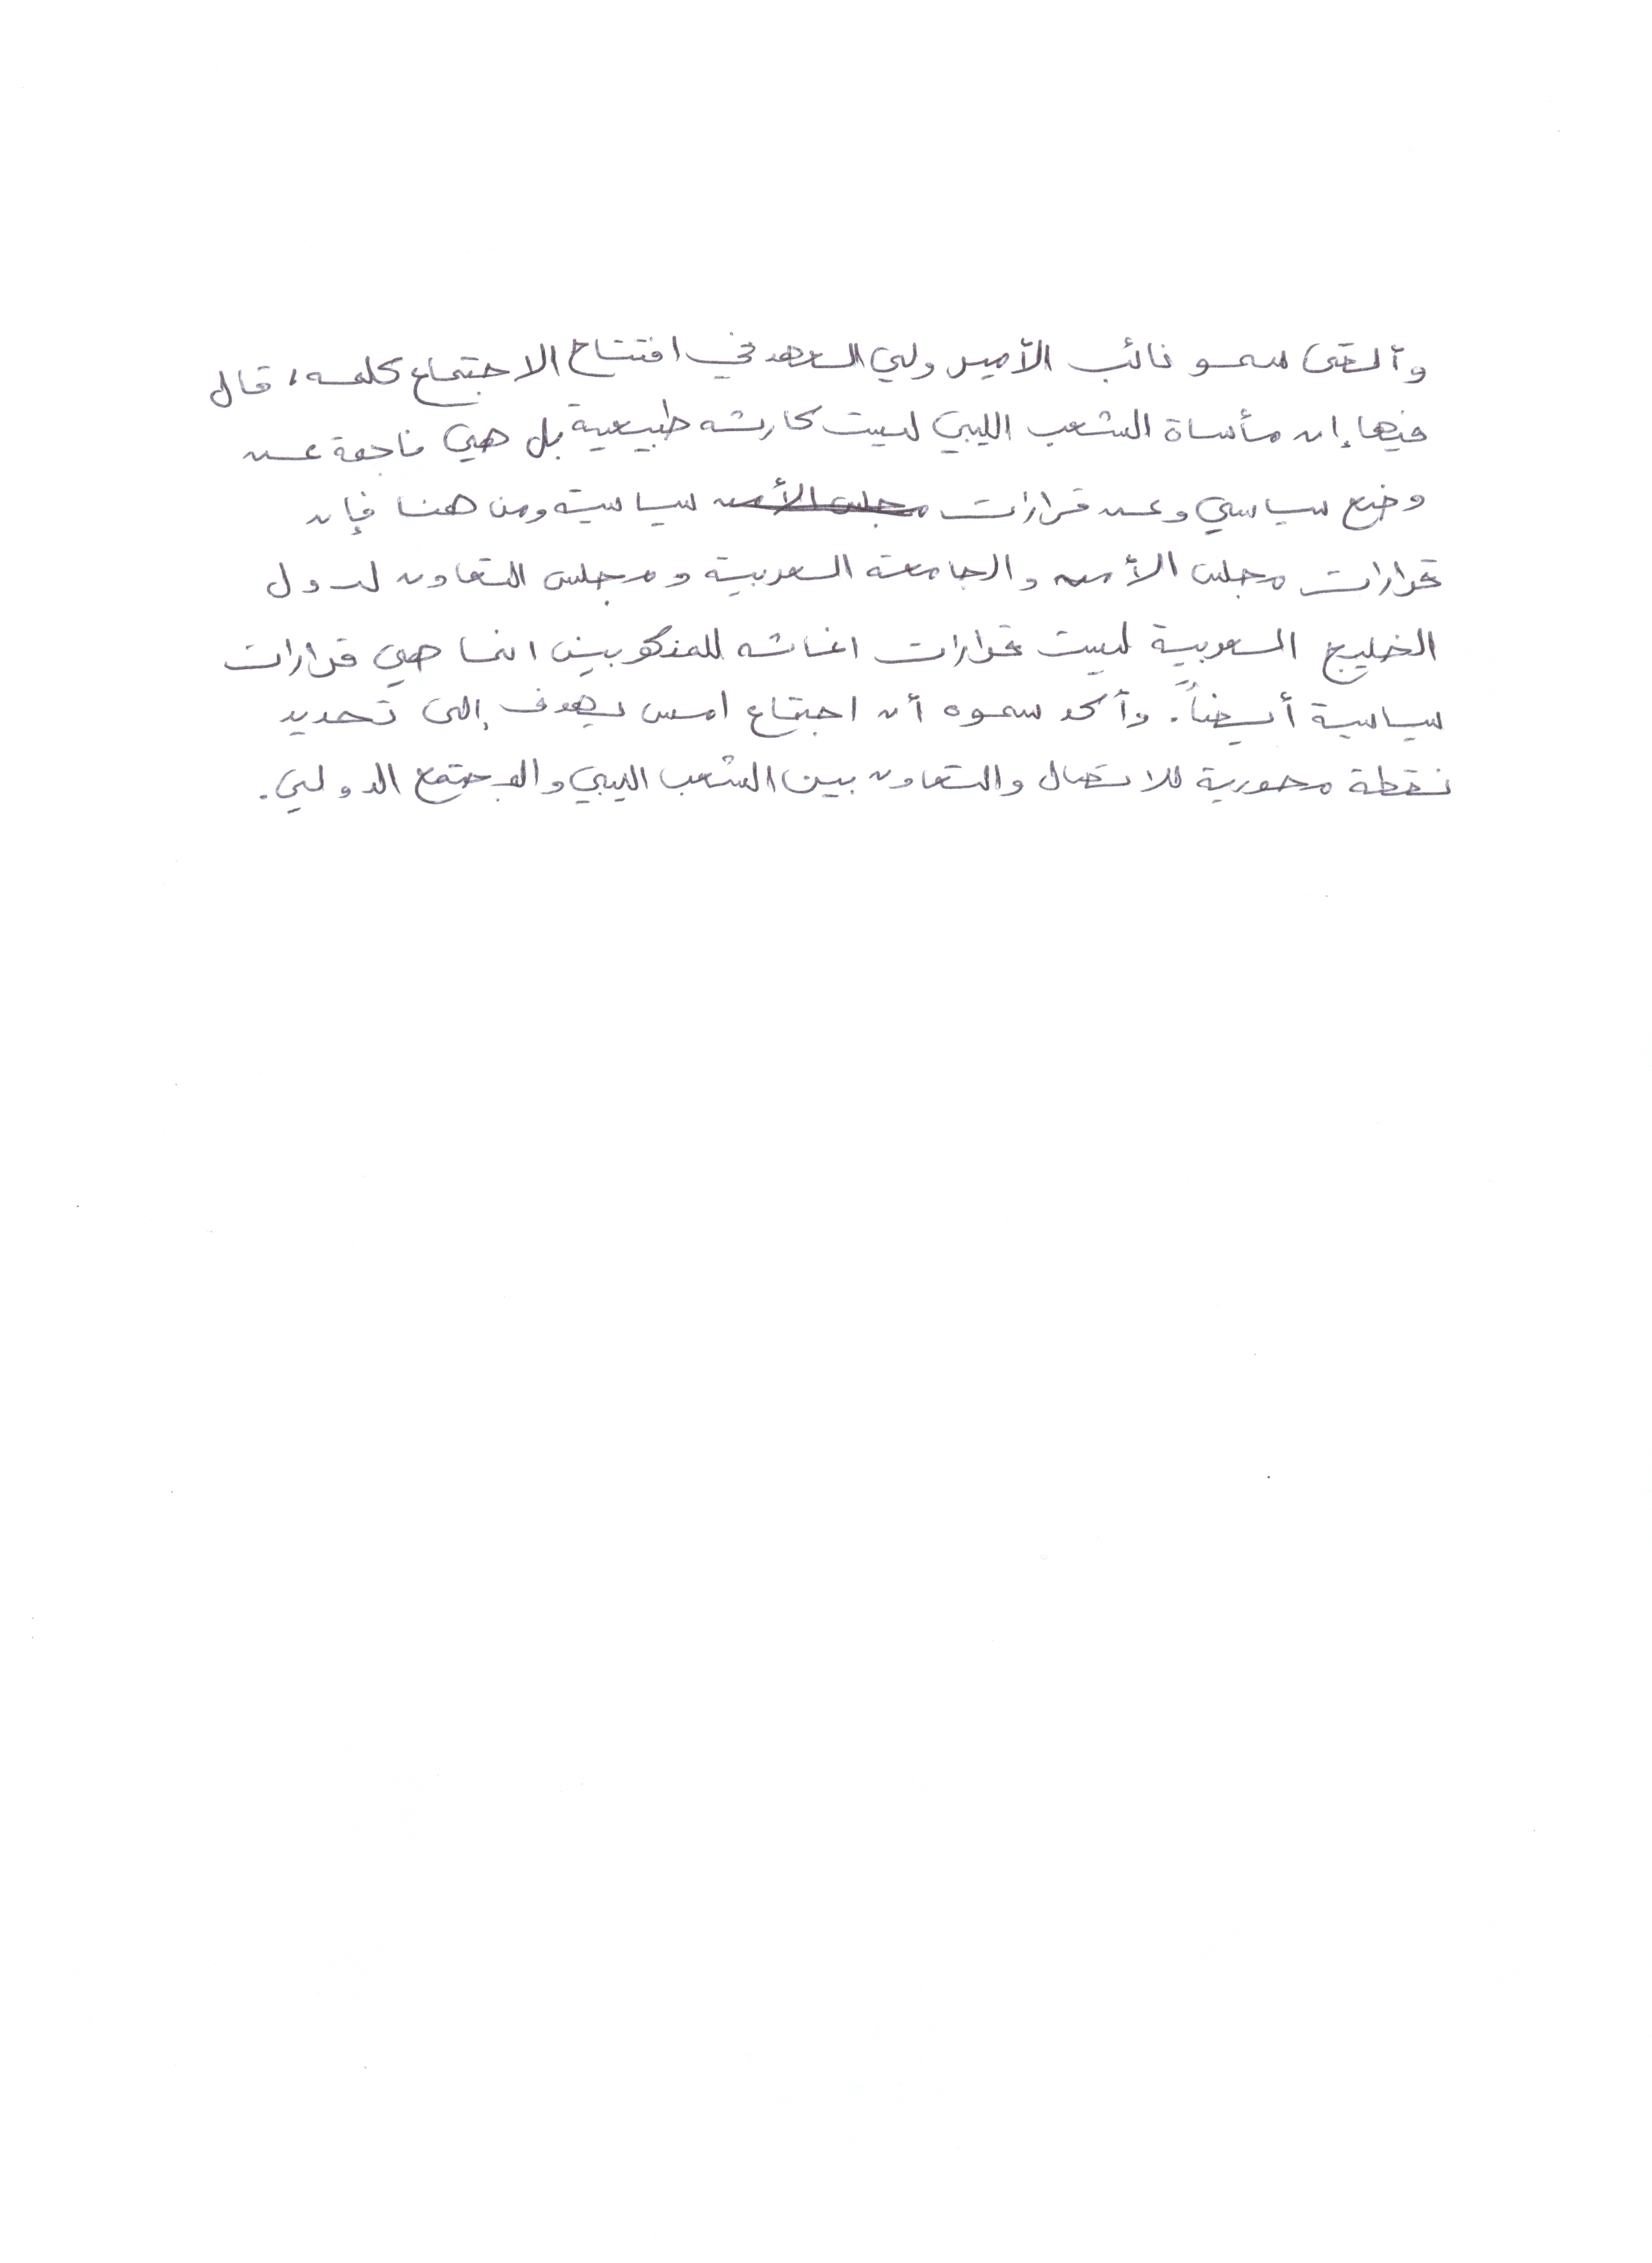 وألقى سمو نائب الأمير ولي العهد في افتتاح الاجتماع كلمه، قال
فيها إن مأساة الشعب الليبي ليست كارثه طبيعية بل هي ناجمة عن
وضع سياسي وعن قرارات مجلس الأمن سياسية ومن هنا فإن
قرارات مجلس الأمن والجامعة العربية ومجلس التعاون لدول
الخليج العربية ليست قرارات اغاثه للمنكوبين انما هي قرارات
سياسية أيضاً. وأكد سموه أن اجتماع امس يهدف إلى تحديد
نقطة محورية للاتصال والتعاون بين الشعب الليبي والمجتمع الدولي.